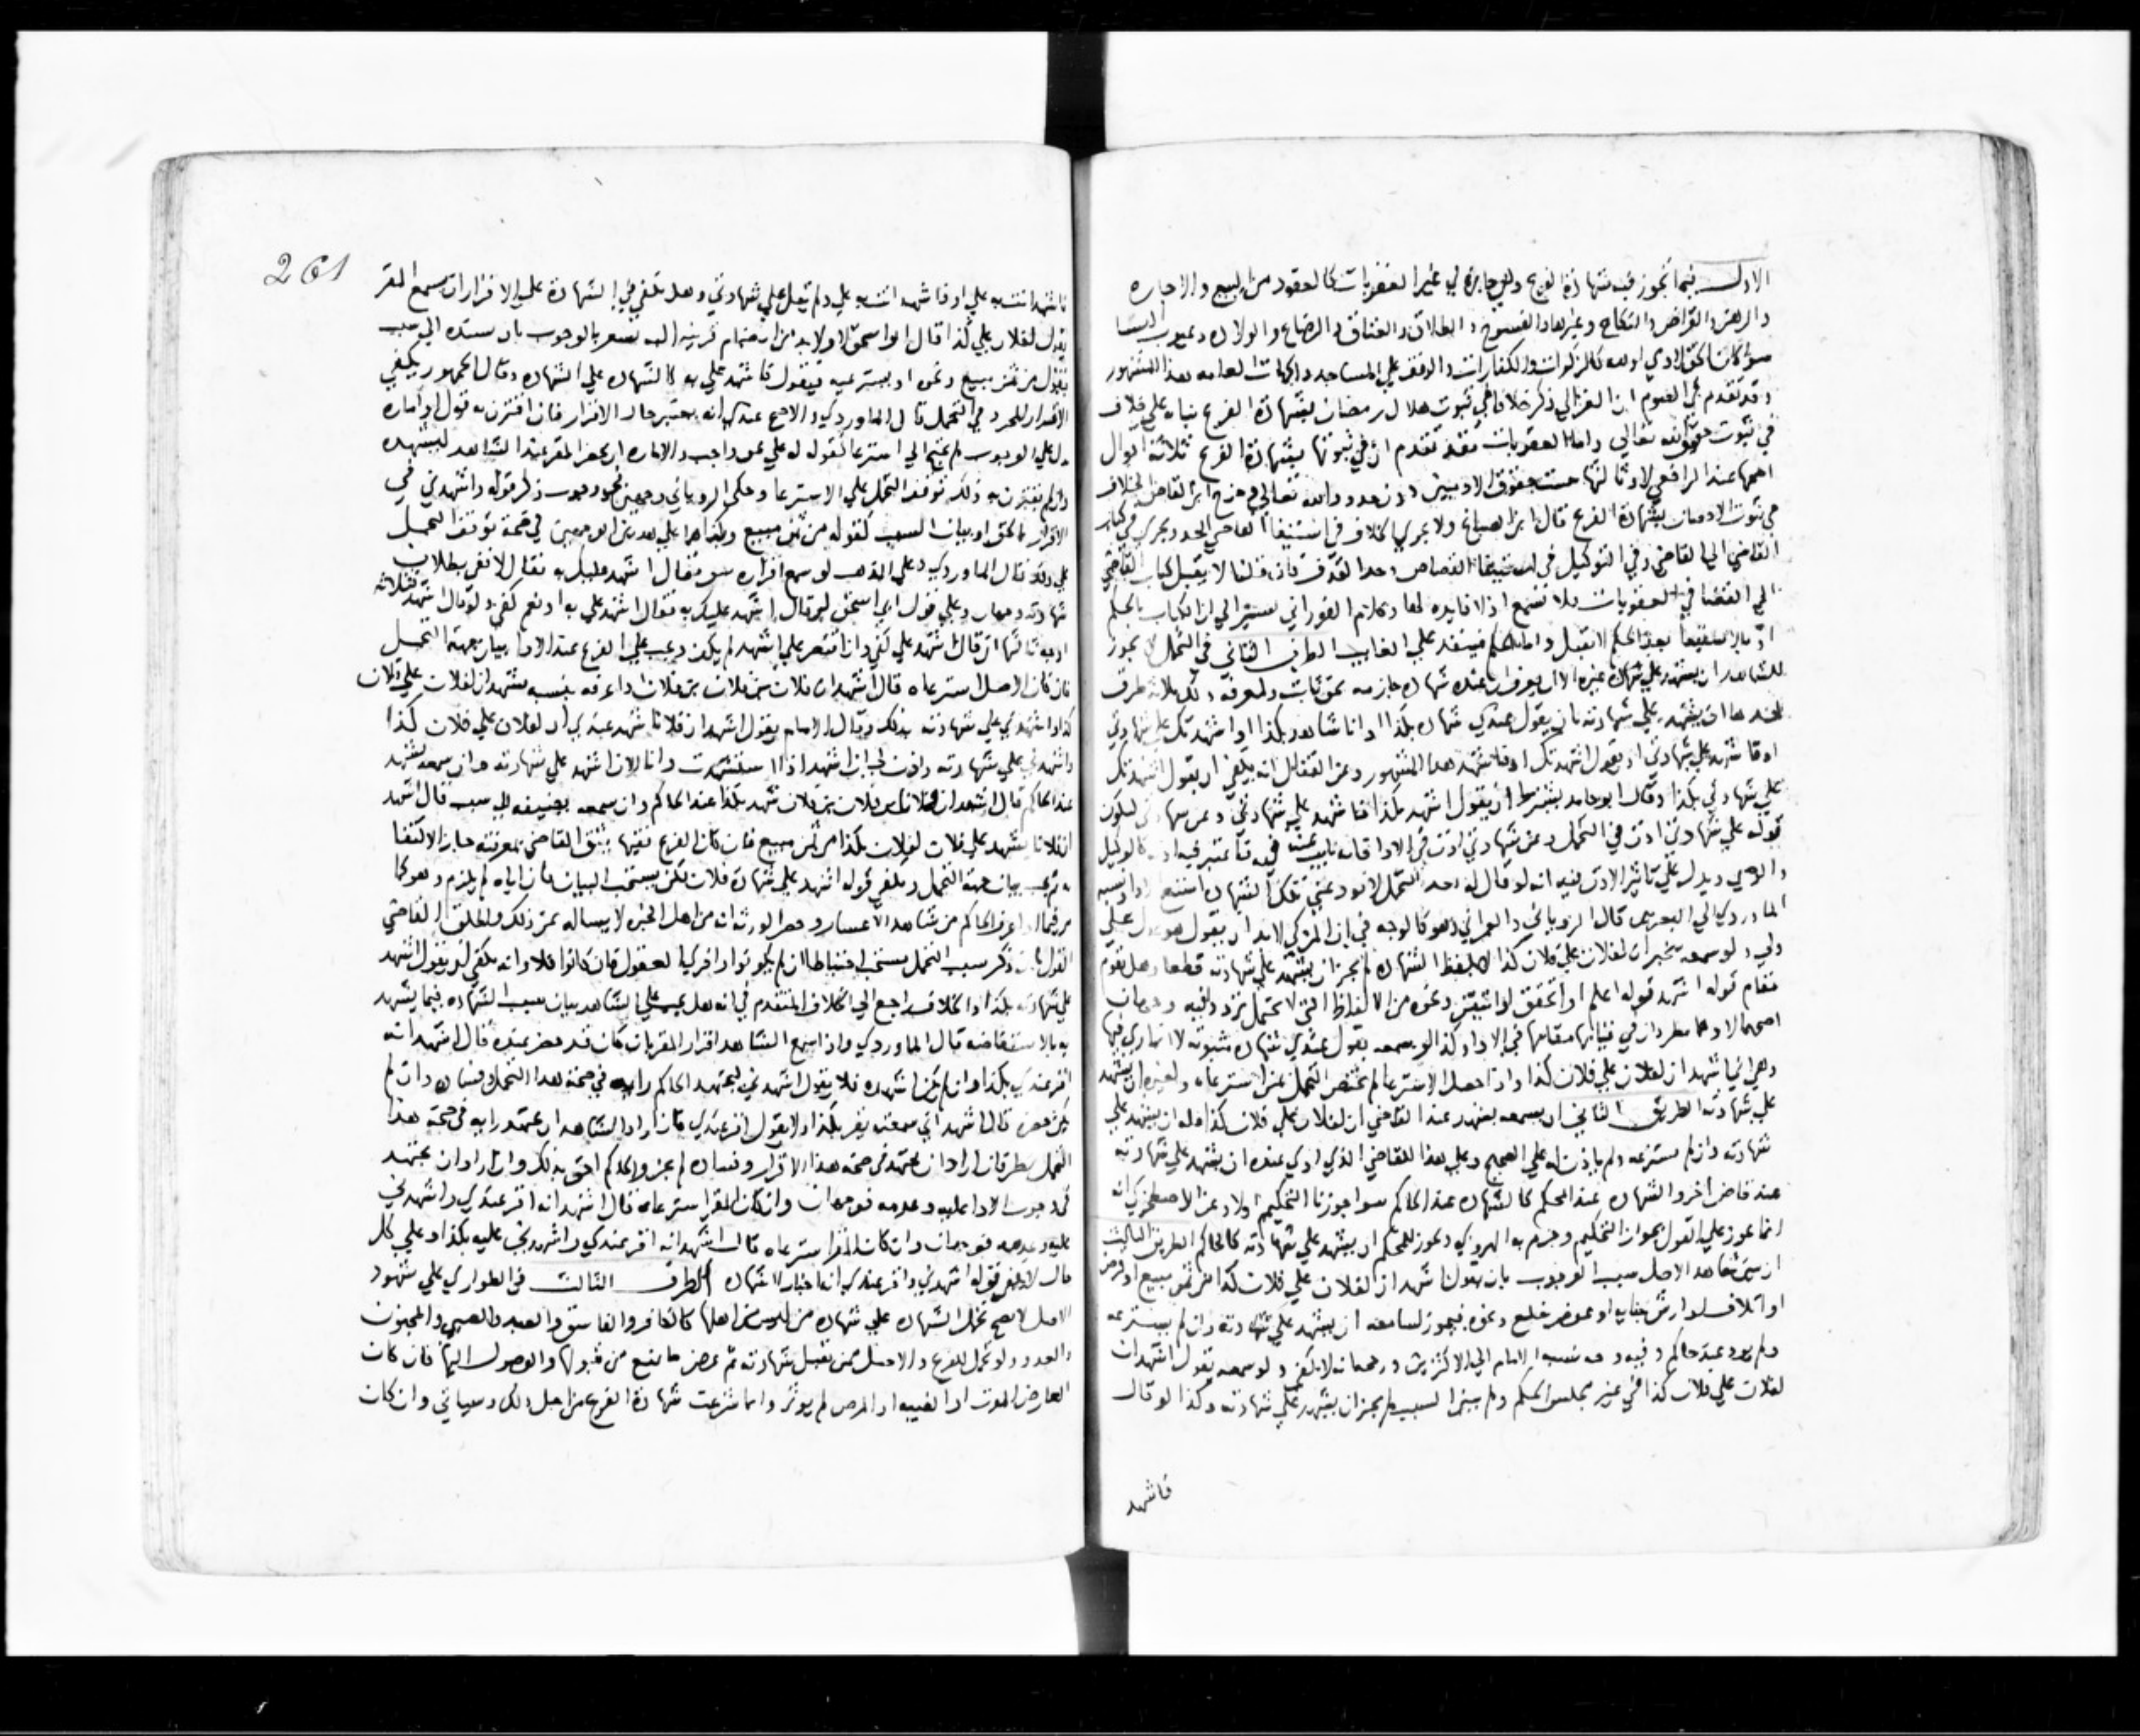 الاول فيما تجوز فيه شهادة الفرع وهي جايزة في غير العقوبات كالعقود من البيع والاجارة
والرهن والقراض والنكاح وغيرها والفسوخ والطلاق والعتاق والرضاع والولادة وعيوب النسا
سوا كان لحق الادمي او لله كالزكوات والكفارات والوقف على المساجد والجهات العامه هذا المشهور
وقد تقدم في الصوم ان الغزالي ذكر خلافا في ثبوت هلال رمضان بشهادة الفرع بناه على خلاف
في ثبوت حقوق الله تعالى واما العقوبات فقد تقدم ان في ثبوتها بشهادة الفرع ثلاثة اقوال
اصحها عند الرافعي لا وثالثها حقوق الادميين دون حدود الله تعالى وخرج ابن القاص الخلاف
في ثبوت الاحصان بشهادة الفرع قال ابن الصباغ ولا يجري الخلاف في استيفا القاضي الحد ويجري في كتاب
القاضي الى القاضي وفي التوكيل في استيفا القصاص وحد القذف فان قلنا لا يقبل كتاب القاضي
الى القضا في العقوبات فلا تسمع اذ لا فايدة لها وكلام الفوراني يشير الى ان الكتاب بالحكم
او بالاستيفا بعد الحكم لا يقبل واما الحكم فينفذ على الغايب الطرف الثاني في التحمل لا يجوز
للشاهد ان يشهد على شهادة غيره الا ان يعرف ان عنده شهادة جازمه بحق ثابت ولمعرفة ذلك ثلاثة طرق
احدها ان يشهده على شهادته بان يقول عندي شهادة بكذا او انا شاهد بكذا او اشهدتك على شهادتي
او فاشهد على شهادتي او يقول اشهدتك او فاشهد هذا المشهور وعن القفال انه يكفي ان يقول اشهدتك
على شهادتي بكذا وقال ابو حامد يشترط ان يقول اشهد بكذا فاشهد على شهادتي وعن شهادتي ليكون
قوله على شهادتي اذن في التحمل وعن شهادتي اذن في الاداء فانه نايب عنه فيه فاعتبر فيه اذنه كالوكيل
والوصي ويدل على تاثير الاذن فيه انه لو قال له بعد التحمل لا تود عني تلك الشهادة امتنع الادا ونسبه
الماوردي الى البصريين قال الروياني والعمراني وهو كالوجه في ان المزكي لابد ان يقول هو عدل علي
ولي ولو سمعه يخبر ان لفلان على فلان كذا لا بلفظ الشهادة لم يجز ان يشهد على شهادته قطعا وهل يقوم
مقام قوله اشهد قوله اعلم او اتحقق او اتيقن ونحوه من الالفاظ التي لا تحتمل تردد فيه وجهان
اصحهما لا وهما مطردان في قيامها مقامها في الاداء وكذا لو سمعه يقول عندي شهادة مثبوته لا اتمارى فيها
وهي اني اشهد ان لفلان على فلان كذا واذا حصل الاسترعا لم يختص التحمل بمن استرعاه ولغيره ان يشهد
على شهادته الطريق الثاني ان يسمعه يشهد عند القاضي ان لفلان على فلان كذا فله ان يشهد على
شهادته وان لم يسترعه ولم ياذن له على الصحيح وعلى هذا للقاضي الذي ادى عنده ان يشهد على شهادته
عند قاض اخر والشهادة عند المحكم كالشهادة عند الحاكم سوا جوزنا التحكيم او لا وعن الاصطخري انه
انما يجوز على القول بجواز التحكيم وجزم به الهروي ويجوز للمحكم ان يشهد على شهادته كالحاكم الطريق الثالث
ان يبين شاهد الاصل سبب الوجوب بان يقول اشهد ان لفلان على فلان كذا من ثمن مبيع او قرض
او اتلاف او ارش جناية او عوض خلع ونحوه فيجوز لسامعه ان يشهد على شهادته وان لم يسترعه
ولم يود عند حاكم وفيه وجه نسبه الامام الى الاكثرين ورجحه انه لا يكفي ولو سمعه يقول اشهد ان
لفلان على فلان كذا في غير مجلس الحكم ولم يبين السبب لم يجز ان يشهد على شهادته وكذا لو قال
فاشهد
261
فاشهد انت به علي او فاشهد انت به علي ولم يقل على شهادتي وهل يكفي في الشهادة على الاقرار ان يسمع المقر
يقول لفلان علي كذا قال ابو اسحق لا ولابد من انضمام قرينة اليه تشعر بالوجوب بان يسنده الى سبب
فيقول من ثمن مبيع ونحوه او يسترعيه فيقول فاشهد علي به كالشهادة على الشهادة وقال الجمهور يكفي
الاقرار المجرد في التحمل قال الماوردي والاصح عندي انه يعتبر حال الاقرار فان اقترن به قول او امارة
يدل على الوجوب لم يحتج الى استرعا كقوله له علي حق واجب والامارة ان يحضر المقر عند الشاهد ليشهده
وان لم يقترن به ذلك توقف التحمل على الاسترعا وحكى الروياني وجهين في وجوب ذكر قوله واشهدني في
الاقرار بالحق او بيان السبب كقوله من ثمن مبيع وبناهما على هذين الوجهين في صحة توقف التحمل
على ذلك قال الماوردي وعلى المذهب لو سمع اقراره سو فقال اشهد عليك به فقال لا ففي بطلان
شهادته وجهان وعلى قول ابي اسحق لو قال اشهد عليك به فقال اشهد علي به او نعم كفى ولو قال اشهد فثلاثة
اوجه ثالثها ان قال اشهد علي كفى وان اقتصر على اشهد لم يكف ويجب على الفرع عند الادا بيان جهة التحمل
فان كان الاصل استرعاه قال اشهد ان فلان بن فلان بن فلان واعرفه بنسبه يشهد ان لفلان على فلان
كذا واشهدني على شهادته بذلك وقال الامام يقول اشهد ان فلانا شهد عندي ان لفلان على فلان كذا
واشهدني على شهادته واذن لي ان اشهد اذا استشهدت وانا الان اشهد على شهادته وان سمعه يشهد
عند الحاكم قال اشهد ان فلان بن فلان بن فلان شهد بكذا عند الحاكم وان سمعه يضيفه الى سبب قال اشهد
ان فلانا يشهد على فلان لفلان بكذا من ثمن مبيع فان كان الفرع فقيها يثق القاضي بمعرفته جاز الاكتفا
ولم يجب بيان جهة التحمل ويكفي قوله اشهد على شهادة فلان لكن يستحب البيان فان اباه لم يلزم وهو كما
مر فيما اذا عرف الحاكم من شاهد الاعسار وحصر الورثة انه من اهل الخبرة لا يساله عن ذلك واطلق القاضي
القول بان ذكر سبب التحمل مستحب احتياطا ان لم يكونوا وافري العقول فان كانوا فلا وانه يكفي لو يقول اشهد
على شهادته بكذا والخلاف راجع الى الخلاف المتقدم في انه هل يجب على الشاهد بيان سبب الشهادة فيما يشهد
به بالاستفاضه قال الماوردي واذا سمع الشاهد اقرار المقر بان كان قد حضر عنده قال اشهد انه
اقر عندي بكذا وان لم يكن اشهده فلا يقول اشهدني ليجتهد الحاكم رايه في صحة هذا التحمل وفساده وان لم
يكن حضره قال اشهد اني سمعته يقر بكذا ولا يقول اقر عندي فان اراد الشاهد ان يجتهد رايه في صحة هذا
التحمل نظر فان اراد ان يجتهد في صحة هذا الاقرار وفساده لم يجز والحاكم احق بذلك وان اراد ان يجتهد
في وجوب الادا عليه وعدمه فوجهان وان كان المقر استرعاه قال اشهد انه اقر عندي واشهدني
عليه وعدمه فوجهان وان كان المقر استرعاه قال اشهد انه اقر عندي واشهدني عليه بكذا وعلى كل
حال لا يكفي قوله اشهدني واقر عندي انه اخبار لا شهادة الطرف الثالث في الطواري على شهود
الاصل لا يصح تحمل الشهادة على شهادة من ليس من اهلها كالكافر والفاسق والعبد والصبي والمجنون
والعدو ولو تحمل الفرع والاصل ممن تقبل شهادته ثم عرض ما يمنع من قبولها والوصول اليها فان كان
العارض الموت او الغيبه او المرض لم يوثر وانما شرعت شهادة الفرع من اجل ذلك وسياتي وان كان